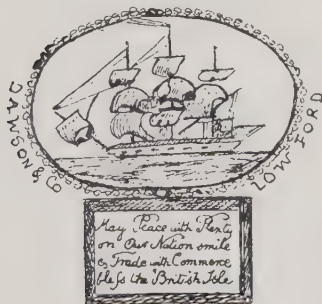 DAWSON & Co
LOW FORD
May Peace with Plenty
on Our Nation smile
& Trade with Commerce
bless the British Isle